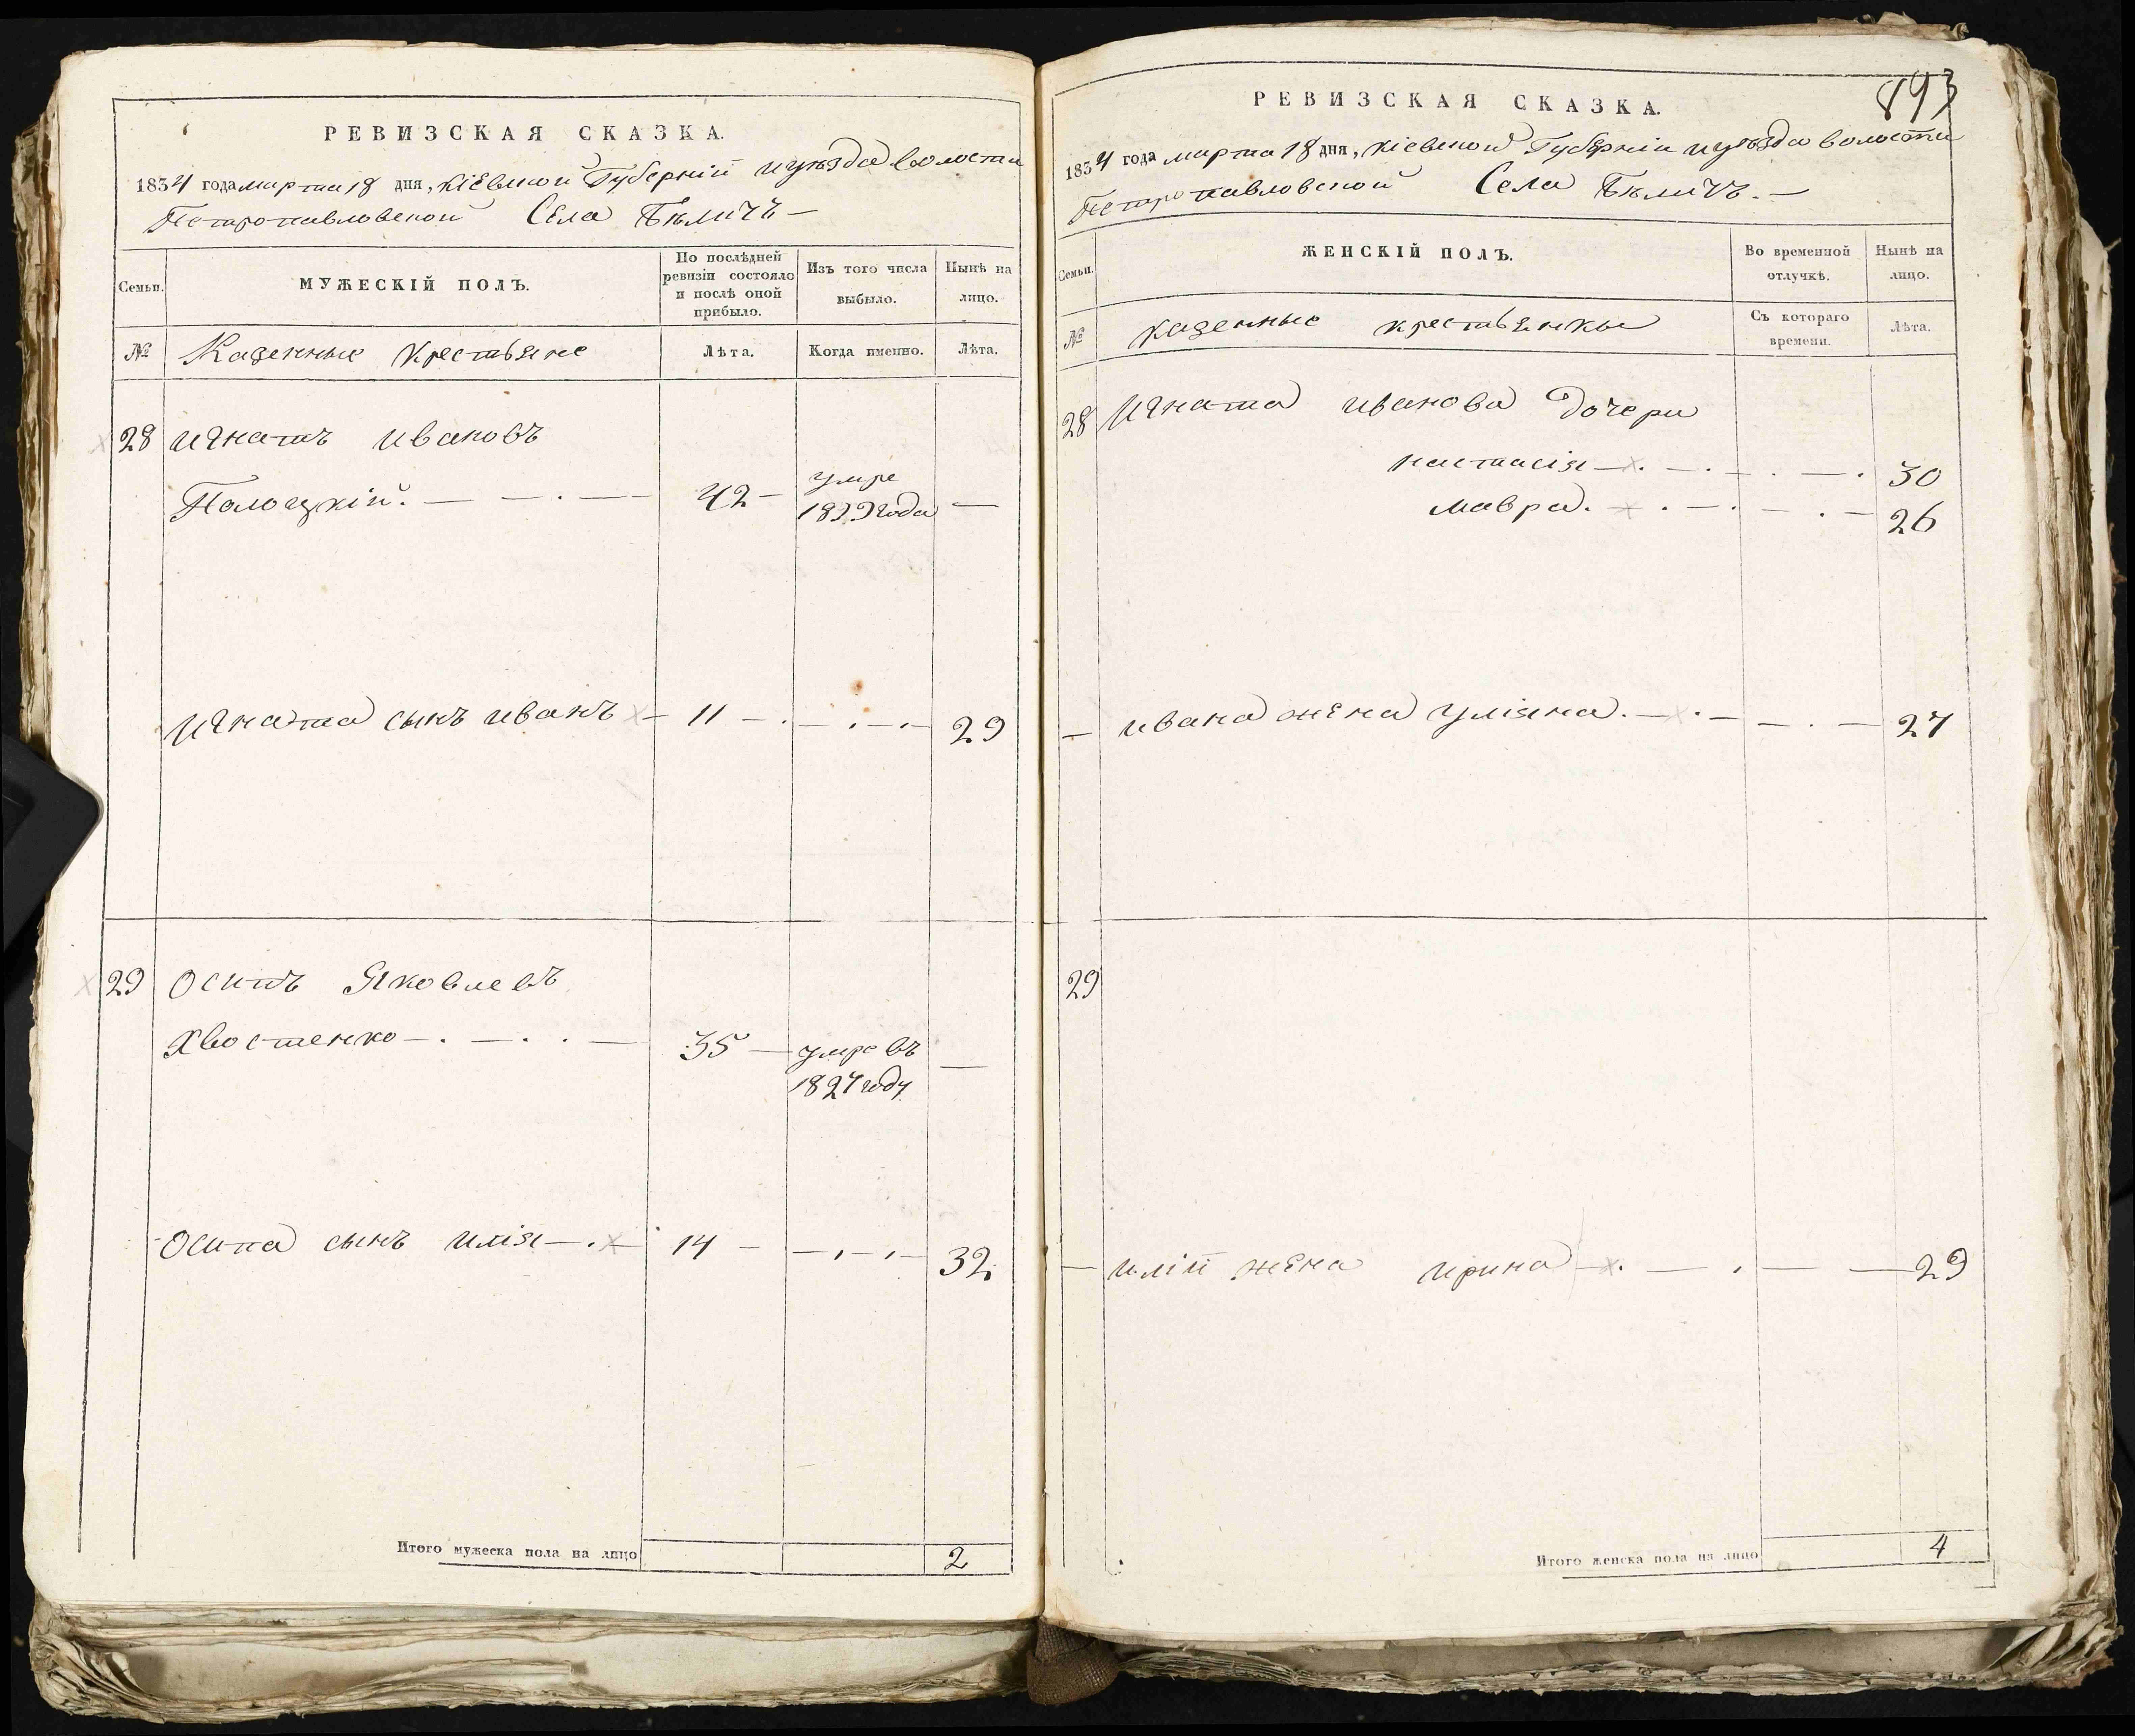 РЕВИЗСКАЯ СКАЗКА.
1834 года марта 18 дня, Кіевской Губерніи и уѣзда волости
Петропавловской Села Бѣличъ —
Семьи.
МУЖЕСКІЙ ПОЛЪ.
По послѣдней ревизіи состояло и послѣ оной прибыло.
Изъ того числа выбыло.
Нынѣ на лицо.
№ Казенные Крестьяне Лѣта. Когда именно. Лѣта.
28 Игнатъ Ивановъ
Полоцкій. — — . — — 42 — умре 18 года —
Игната сынъ Иванъ — 11 — . — . — . — 29
29 Осипъ Яковлевъ
Хвостенко — . — . . — 35 — умре въ 1827 году —
Осипа сынъ Илія — . — 14 — — . — . — 32
Итого мужеска пола на лицо 2
893
РЕВИЗСКАЯ СКАЗКА.
1834 года марта 18 дня, Кіевской Губерніи и уѣзда волости
Петропавловской Села Бѣличъ. —
Семьи.
ЖЕНСКІЙ ПОЛЪ.
Во временной отлучкѣ.
Нынѣ на лицо.
№ Казенные крестьянки Съ котораго времени. Лѣта.
28 Игната Иванова дочери
Настасія — . — . — . — . 30
Мавра. — . — . — . — 26
— Ивана жена Уліяна. — . — — . — 27
29
— Иліи жена Ирина — . — . — — 29
Итого женска пола на лицо 4